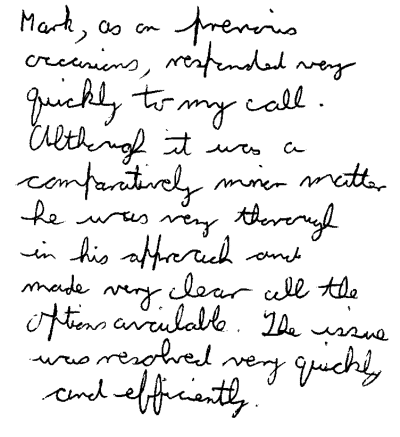 Mark, as on previous
occasions, responded very
quickly to my call.
Although it was a
comparatively minor matter
he was very thorough
in his approach and
made very clear all the
options available. The issue
was resolved very quickly
and efficiently.